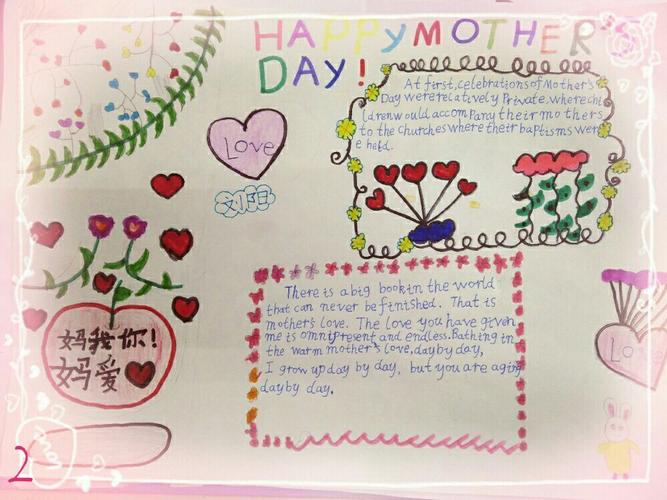 HAPPY MOTHER'S
DAY!
At first, celebrations of Mother's
Day were relatively Private, where chi
ldren would accom Pany their mothers
to the churches where their baptisms wer
e held.
Love
妈我你!
妈爱
There is a big book in the world
that can never be finished. That is
mother's love. The love you have given
me is omnipresent and endless. Bathing in
the warm mother's love, day by day,
I grow up day by day, but you are aging
day by day.
Lo
2